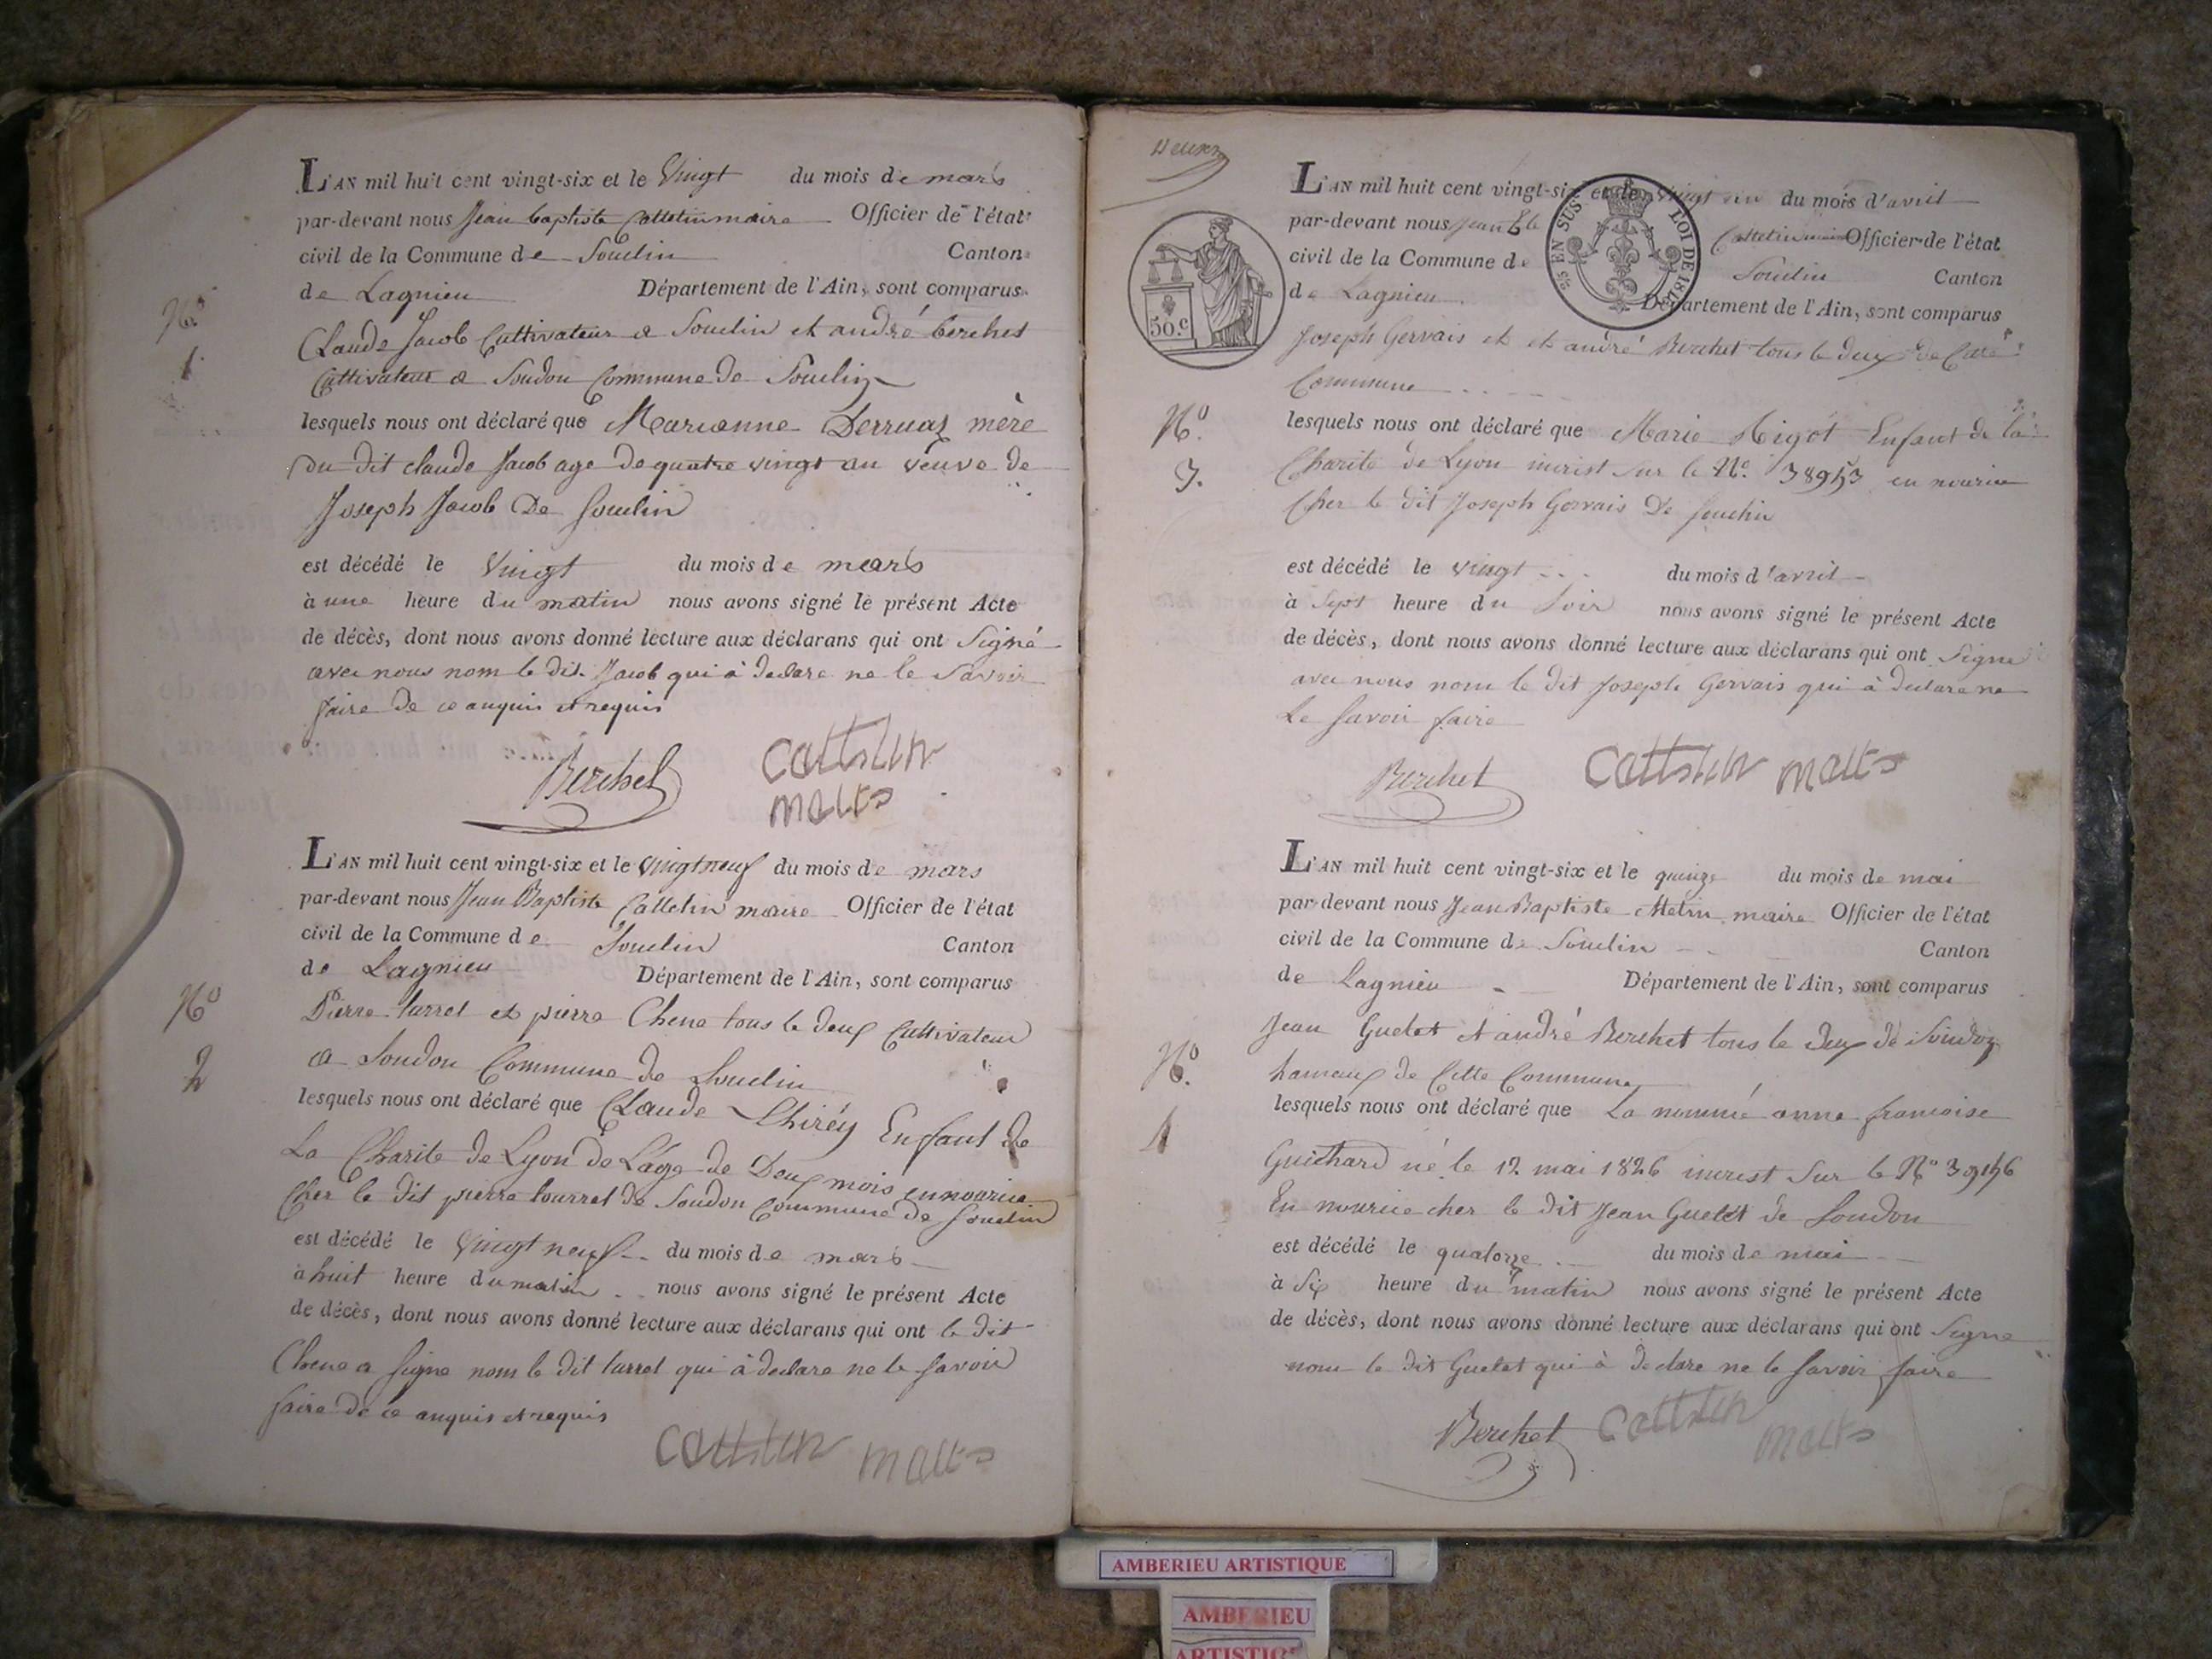 L'AN mil huit cent vingt-six et le vingt du mois de mars
par-devant nous Jean baptiste Cattetin maire Officier de l'état
civil de la Commune de Souclin Canton
de Lagnieu Département de l'Ain, sont comparus
Claude Jacob Cultivateur a Souclin et andré berchet
Cultivateur a Soudon Commune de Souclin
N° 1.
lesquels nous ont déclaré que Marianne Derruaz mère
du dit claude Jacob age de quatre vingt an veuve de
Joseph Jacob De Souclin
est décédé le vingt du mois de mars
à une heure du matin nous avons signé le présent Acte
de décès, dont nous avons donné lecture aux déclarans qui ont Signé
avec nous nom le dit Jacob qui à declare ne le Savoir
faire de ce anquis et requis
Berchet Cattetin
maire
L'AN mil huit cent vingt-six et le vingt neuf du mois de mars
par-devant nous Jean Baptiste Cattetin maire Officier de l'état
civil de la Commune de Souclin Canton
de Lagnieu Département de l'Ain, sont comparus
N° 2
Pierre turrel et pierre Chene tous le deux Cultivateur
a Soudon Commune de Souclin
lesquels nous ont déclaré que Claude Chiréy Enfant de
La Charite de Lyon de L'age de Deux mois en nourice
Cher le dit pierre tourrel de Soudon Commune de Souclin
est décédé le vingt neuf du mois de mars
à huit heure du matin nous avons signé le présent Acte
de décès, dont nous avons donné lecture aux déclarans qui ont le dit
Chene a signe nom le dit turrel qui à declare ne le Savoir
faire de ce anquis et requis
Cattetin maire
50.c
25 EN SUS LOI DE 1816
L'AN mil huit cent vingt-six et le vingt un du mois d'avril
par-devant nous Jean Bte Cattetin maire Officier de l'état
civil de la Commune de Souclin Canton
de Lagnieu Département de l'Ain, sont comparus
Joseph Gervais et et andré Berchet tous le deux de
Commune
N° 3.
lesquels nous ont déclaré que Marie Rigot Enfant de la
Charite de Lyon incrist Sur le N° 38953 en nourice
Cher le dit Joseph Gervais De Souclin
est décédé le vingt du mois d'avril
à Sept heure du Soir nous avons signé le présent Acte
de décès, dont nous avons donné lecture aux déclarans qui ont Signe
avec nous nom le dit Joseph Gervais qui à declare ne
Le Savoir faire
Berchet Cattetin maire
L'AN mil huit cent vingt-six et le quinze du mois de mai
par-devant nous Jean Baptiste maire Officier de l'état
civil de la Commune de Souclin Canton
de Lagnieu Département de l'Ain, sont comparus
Jean Guelat et andré Berchet tous le deux de Soudon
hameaux de Cette Commune
N°. 4
lesquels nous ont déclaré que La nommé anne francoise
Guichard né le 12 mai 1826 incrist Sur le N° 39156
En nourice cher le dit Jean Guelat de Soudon
est décédé le quatorze du mois de mai
à Six heure du matin nous avons signé le présent Acte
de décès, dont nous avons donné lecture aux déclarans qui ont Signe
nom le dit Guelat qui à declare ne le Savoir faire
Berchet Cattetin maire
AMBERIEU ARTISTIQUE
AMBERIEU
ARTISTIQUE